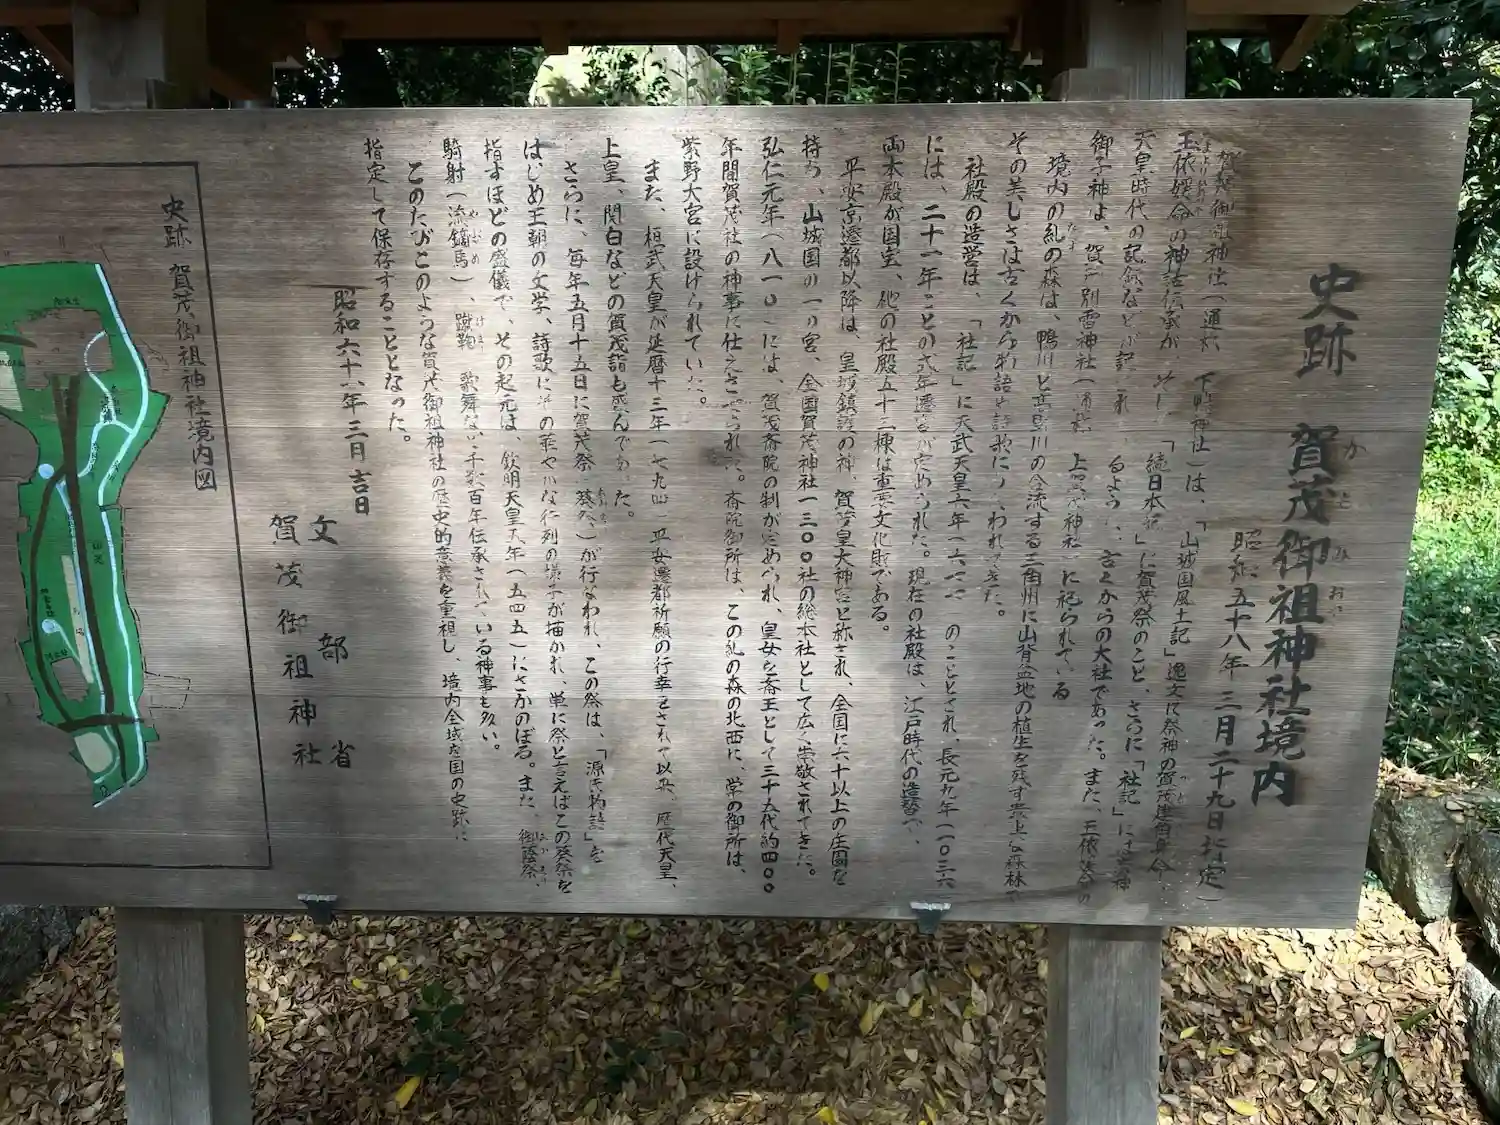 史跡 賀茂御祖神社境内
かもみおや
昭和五十八年三月二十九日指定)
賀茂御祖神社(通称 下鴨神社)は、「山城国風土記」逸文に祭神の賀茂建角身命、
玉依媛命の神話伝承が 「続日本紀」に賀茂祭のこと、さらに「社記」には崇神
天皇時代の記録などが記 古くからの大社であった。また、玉依媛命の
御子神は、賀茂別雷神社(通称 上賀茂神社)に祀られている
境内の糺の森は、鴨川と高野川の合流する三角州に山背盆地の植生を残す貴重な森林で
ただす
その美しさは古くから物語や詩歌にうたわれてきた。
社殿の造営は、「社記」に天武天皇六年 のこととされ、長元九年(一〇三六
には、二十一年ごとの式年遷宮が定められた。現在の社殿は、江戸時代の造替で、
両本殿が国宝、他の社殿五十三棟は重要文化財である。
平安京遷都以降は、皇城鎮護の神、賀茂皇大神宮と称され、全国に六十以上の庄園を
持ち、山城国の一の宮、全国賀茂神社一三〇〇社の総本社として広く崇敬されてきた。
弘仁元年(八一〇)には、賀茂斎院の制が定められ、皇女を斎王として三十五代約四〇〇
年間賀茂社の神事に仕えさせられた。斎院御所は、この糺の森の北西に、常の御所は、
紫野大宮に設けられていた。
また、桓武天皇が延暦十三年(七九四)平安遷都祈願の行幸をされて以来、歴代天皇、
上皇、関白などの賀茂詣も盛んであった。
さらに、毎年五月十五日に賀茂祭(葵祭)が行なわれ、この祭は、「源氏物語」を
はじめ王朝の文学、詩歌にその華やかな行列の様子が描かれ、単に祭と言えばこの葵祭を
指すほどの盛儀で、その起元は、欽明天皇五年(五四五)にさかのぼる。また、御蔭祭、
騎射(流鏑馬)、蹴鞠、歌舞など千数百年伝承されている神事も多い。
やぶさめ けまり
このたびこのような賀茂御祖神社の歴史的意義を重視し、境内全域を国の史跡に
指定して保存することとなった。
昭和六十八年三月吉日
文部省
賀茂御祖神社
史跡 賀茂御祖神社境内図